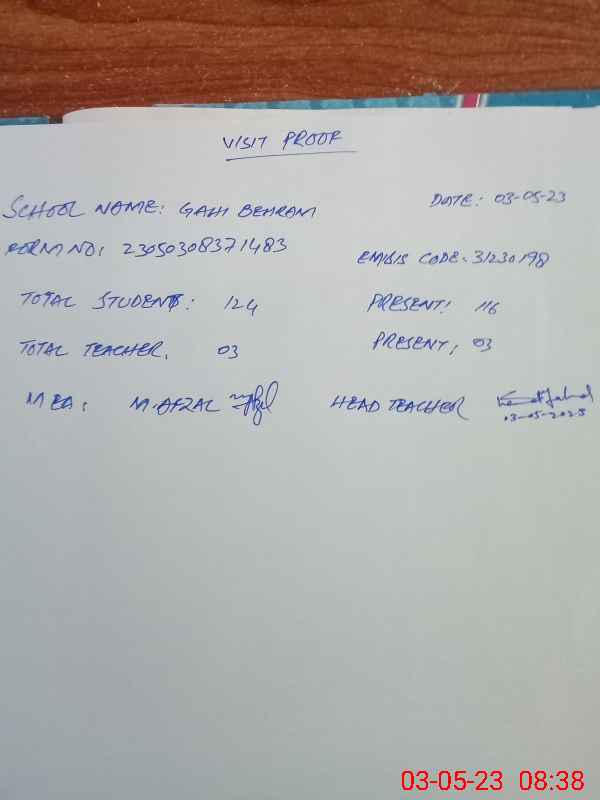 VISIT PROOF
SCHOOL NAME: GAHI BEHRAM DATE: 03-05-23
FORM NO: 23050308371483 EMIS CODE: 31230198
TOTAL STUDENTS: 124 PRESENT: 116
TOTAL TEACHER: 03 PRESENT: 03
MEA: M.AFZAL HEAD TEACHER
03-05-2023
03-05-23 08:38